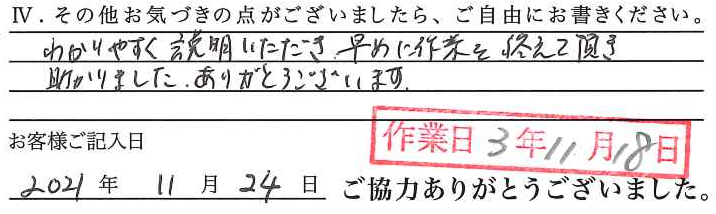 Ⅳ．その他お気づきの点がございましたら、ご自由にお書きください。
わかりやすく説明いただき、早めに作業を終えて頂き
助かりました。ありがとうございます。
作業日 3年11月18日
お客様ご記入日
2021 年 11 月 24 日 ご協力ありがとうございました。